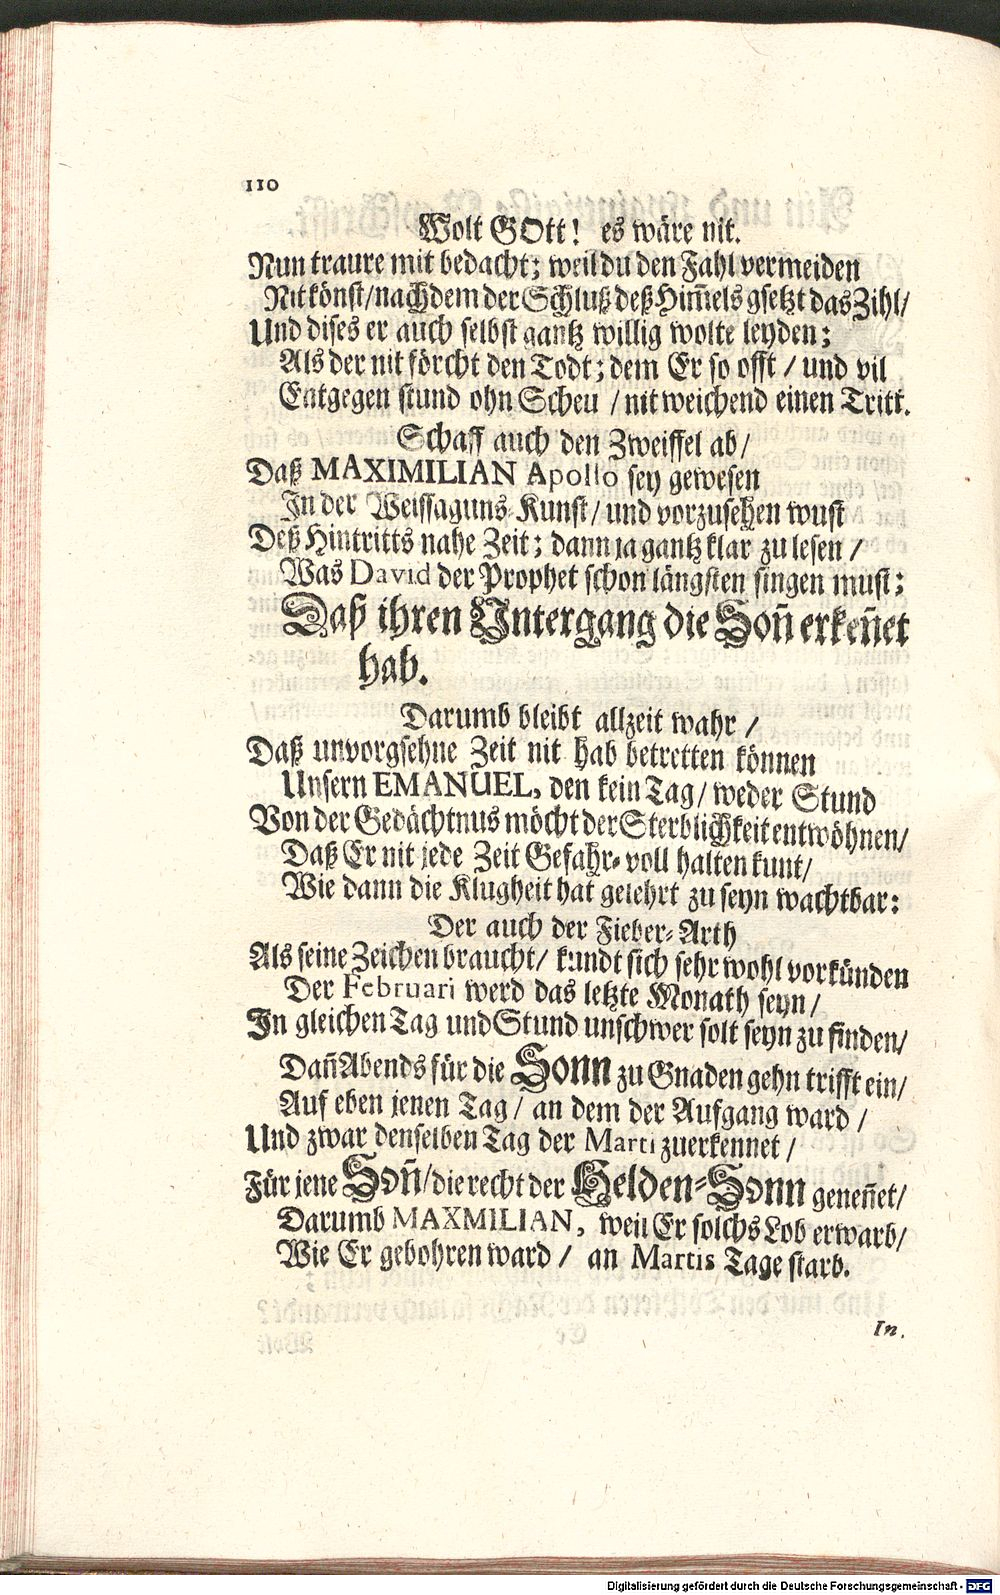 110
Wolt GOtt! es wäre nit.
Nun traure mit bedacht; weil du den Fahl vermeiden
Nit könst/nachdem der Schluß deß Him̄els gsetzt das Zihl/
Und dises er auch selbst gantz willig wolte leyden;
Als der nit förcht den Todt; dem Er so offt / und vil
Entgegen stund ohn Scheu / nit weichend einen Tritt.
Schaff auch den Zweiffel ab/
Daß MAXIMILIAN Apollo sey gewesen
In der Weissaguns-Kunst/ und vorzusehen wust
Deß Hintritts nahe Zeit; dann ja gantz klar zu lesen /
Was David der Prophet schon längsten singen must;
Daß ihren Untergang die Son̄ erken̄et
hab.
Darumb bleibt allzeit wahr /
Daß unvorgsehne Zeit nit hab betretten können
Unsern EMANUEL, den kein Tag/ weder Stund
Von der Gedächtnus möcht der Sterblichkeit entwöhnen/
Daß Er nit jede Zeit Gefahr-voll halten kunt/
Wie dann die Klugheit hat gelehrt zu seyn wachtbar:
Der auch der Fieber-Arth
Als seine Zeichen braucht/ kundt sich sehr wohl vorkünden
Der Februari werd das letzte Monath seyn/
In gleichen Tag und Stund unschwer solt seyn zu finden/
Dan̄ Abends für die Sonn zu Gnaden gehn trifft ein/
Auf eben jenen Tag/ an dem der Aufgang ward /
Und zwar denselben Tag der Marti zuerkennet /
Für jene Son̄/ die recht der Helden-Sonn genen̄et/
Darumb MAXMILIAN, weil Er solchs Lob erwarb/
Wie Er gebohren ward / an Martis Tage starb.
In.
Digitalisierung gefördert durch die Deutsche Forschungsgemeinschaft - DFG